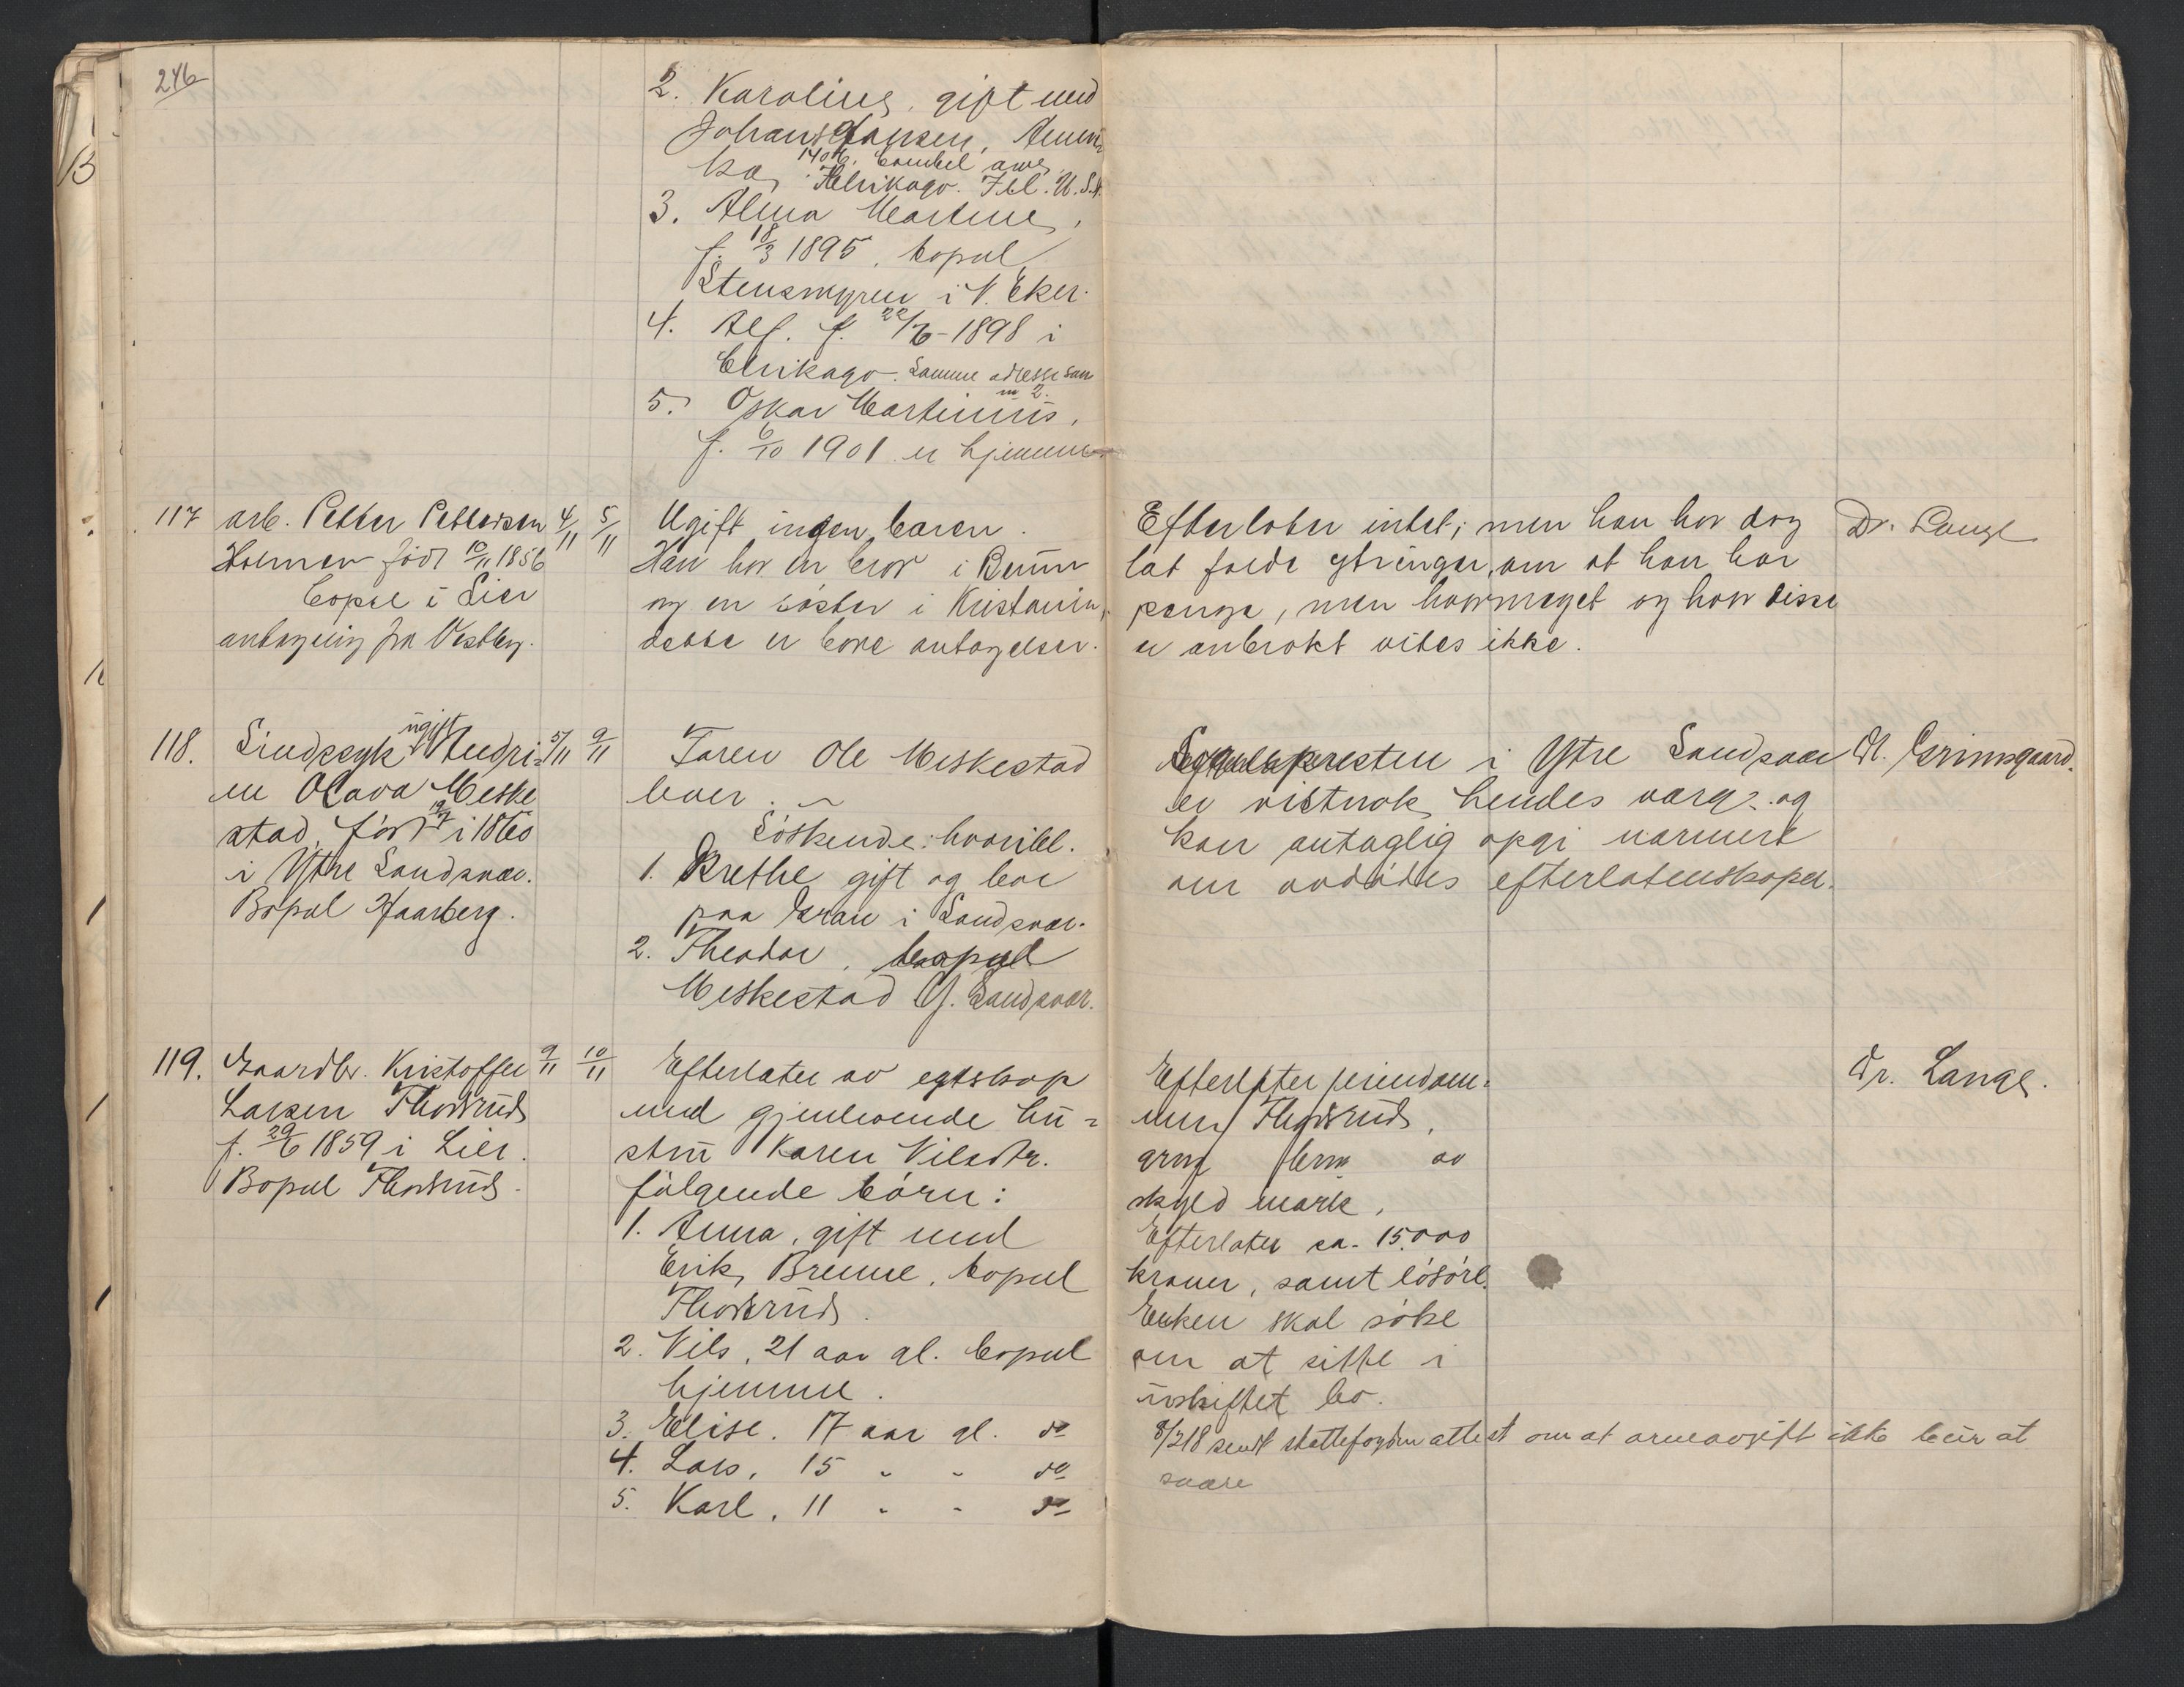 246
2. Karoline, gift med
Johans Hansen, Ameri
ka, 140
Chikago. Ill. U.S.A.
3. Alma Martine,
f. 18/3 1895, bopæl
Stensmyren i N. Eker.
4. Alf. f. 22/6-1898 i
Chikago. Samme adresse som
nr 2.
5. Oskar Martinius,
f. 6/10 1901 er hjemme
117 arb. Petter Pettersen 4/11 5/11
Holmen født 10/11 1856
bopæl i Lier
antagelig fra Vestby.
Ugift ingen barn.
Han har en bror i
og en søster i Kristania,
dette er bare antagelser.
Efterlater intet; men han har dog
lat falde ytringer, om at han har
penge, men hvormeget og hvor disse
er anbrakt vites ikke.
Dr. Lange
118. Sindssyk ugift Andri= 5/11 9/11
ne Olava Meske
stad, født 19/7 i 1860
i Ytre Sandsvær.
Bopæl Haarberg.
Faren Ole Meskestad
lever.
Søskende: hvoribl.
1. Grethe gift og bor
paa Gran i Sandsvær.
2. Theodor, bopæl
Meskestad Y. Sandsvær.
Sognepresten i Ytre Sandsvær
er vistnok hendes værge og
kan antaglig opgi nærmere
om avdødes efterlatenskaper.
Dl. Grimsgaard.
119. Gaardbr. Kristoffer 9/11 10/11
Larsen Thorsrud
f. 29/6 1859 i Lier.
Bopæl Thorsrud.
Efterlater av egtskap
med gjenlevende hu=
stru Karen Nilsdtr.
følgende børn:
1. Anna, gift med
Erik Brenne, bopæl
Thorsrud.
2. Nils, 21 aar gl. bopæl
hjemme.
3. Elise. 17 aar gl. do
4. Lars, 15 " " do
5. Karl, 11 " " do
Efterlater eiendom=
men Thorsrud,
grnr brnr av
skyld mark,
Efterlater ca. 15.000
kroner, samt løsøre.
Enken skal søke
om at sitte i
uskiftet bo.
8/2 18 sendt skattefogden attest om at arveavgift ikke blir at
svare
Dr. Lange.